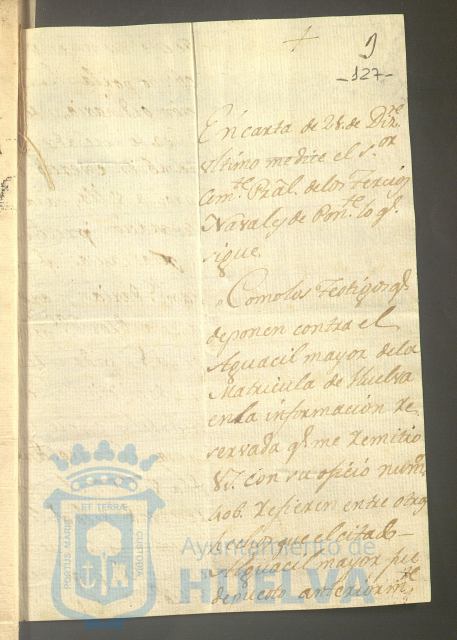 9
-127-
En carta de 28. de Dizre.
ultimo me dice el s.or
Com.te Pral. de los Tercios
Navales de Pon.te lo q.e
sigue.
"Como los Testigos q.e
deponen contra el
Aguacil mayor de la
Matricula de Huelva
en la información re-
servada q.e me remitio
V.S. con su oficio num.o
406. refieren entre otros
hechos que el citado
Alguacil mayor fue
depuesto anteriorm.te
PORTUS MARIS
ET TERRÆ
CUSTODIA
Ayuntamiento de
HUELVA